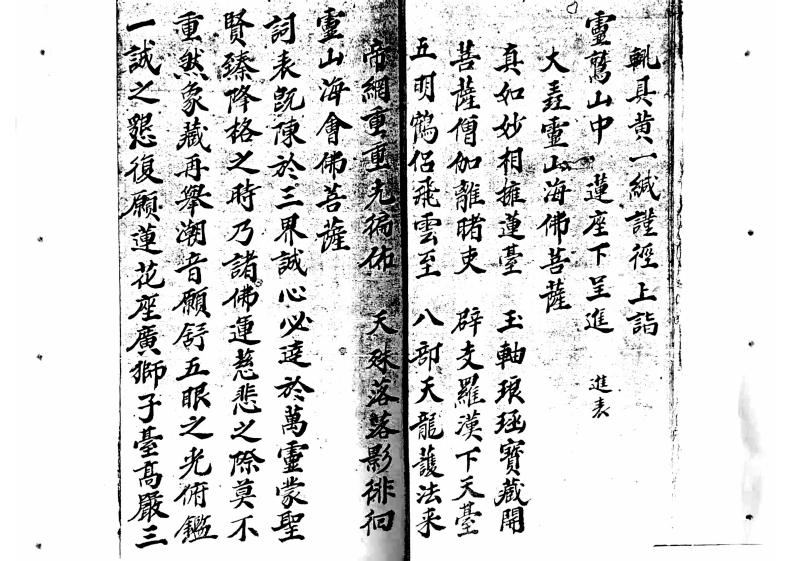 軏具黄一緘謹徑上詣
靈鷲山中　蓮座下呈進　進表
大聖靈山海佛菩薩
真如妙相擁蓮臺　玉軸琅函寶藏開
菩薩僧伽離睹吏　辟支羅漢下天臺
五明鶴侶飛雲至　八部天龍護法来
帝網重重光徧佈　天珠落落影徘徊
靈山海會佛菩薩
詞表既陳於三界誠心必達於萬靈蒙聖
賢臻降格之時乃諸佛運慈悲之際莫不
重然象藏再舉潮音願舒五眼之光俯鑑
一誠之懇復願蓮花座廣獅子臺高嚴三